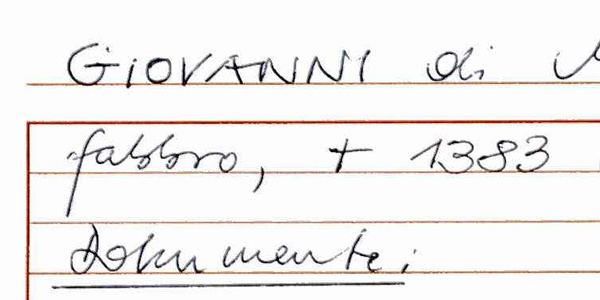 GIOVANNI di
fabbro, + 1383
Dokumente: